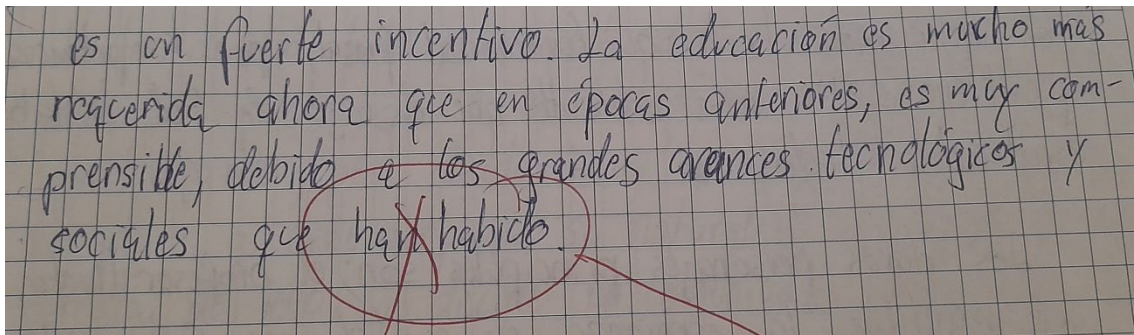 es un fuerte incentivo. La educación es mucho más
requerida ahora que en épocas anteriores, es muy com-
prensible, debido a los grandes avances tecnológicos y
sociales que han habido.